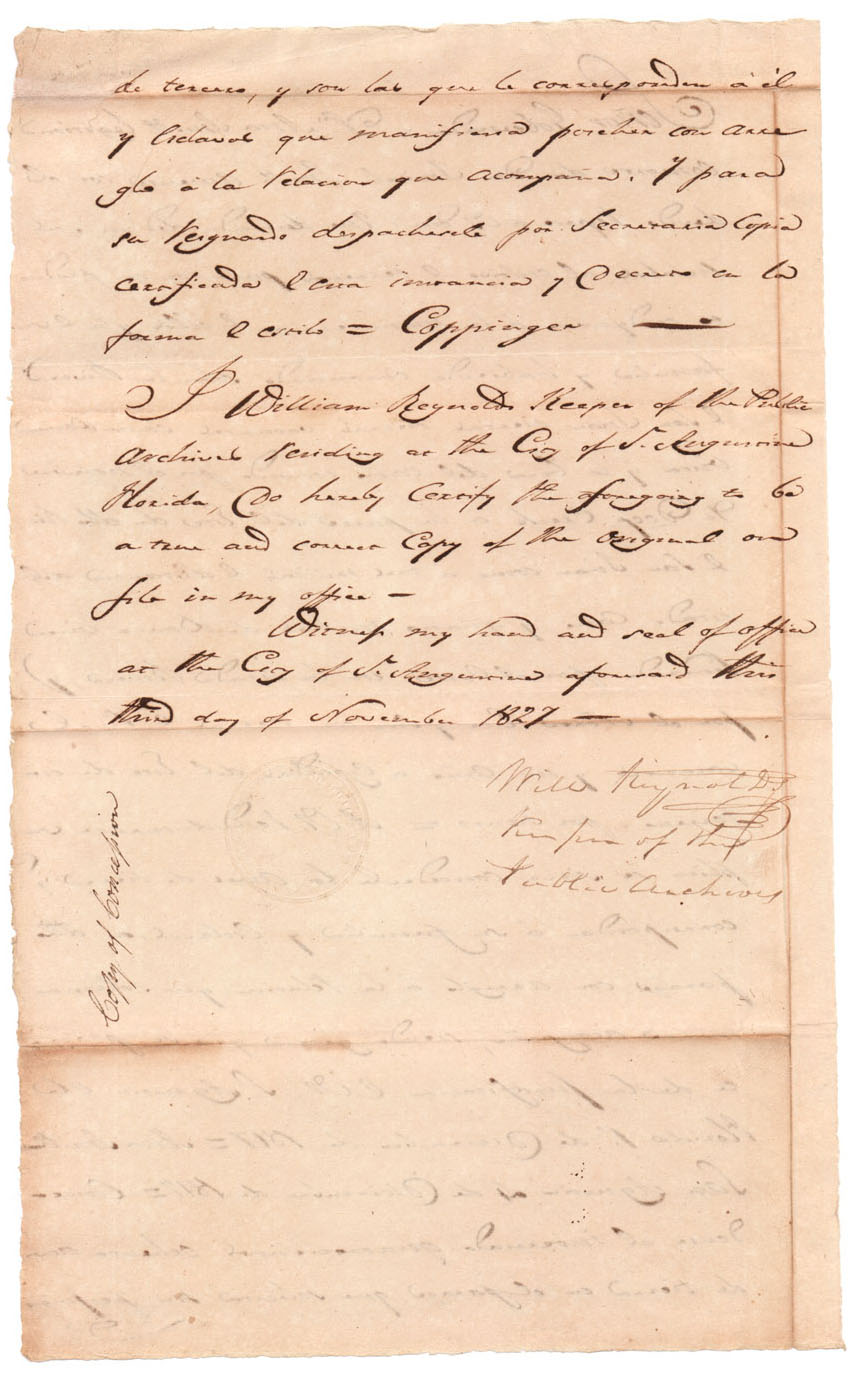 de tercero, y son las que le corresponden á él
y Esclavos que manifiesta poseher con arre
glo á la relacion que acompaña. Y para
su resguardo despachesele por Secretaria Copia
certificada de esta instancia y Decreto en la
forma de estilo = Coppinger —
I William Reynolds Keeper of the Public
Archives residing at the City of St. Augustine
Florida, Do hereby Certify the aforegoing to be
a true and correct Copy of the Original on
file in my office —
Witness my hand and seal of office
at the City of St. Augustine aforesaid this
third day of November 1827 —
Will Reynolds
Keeper of the
Public Archives
Copy of Concession